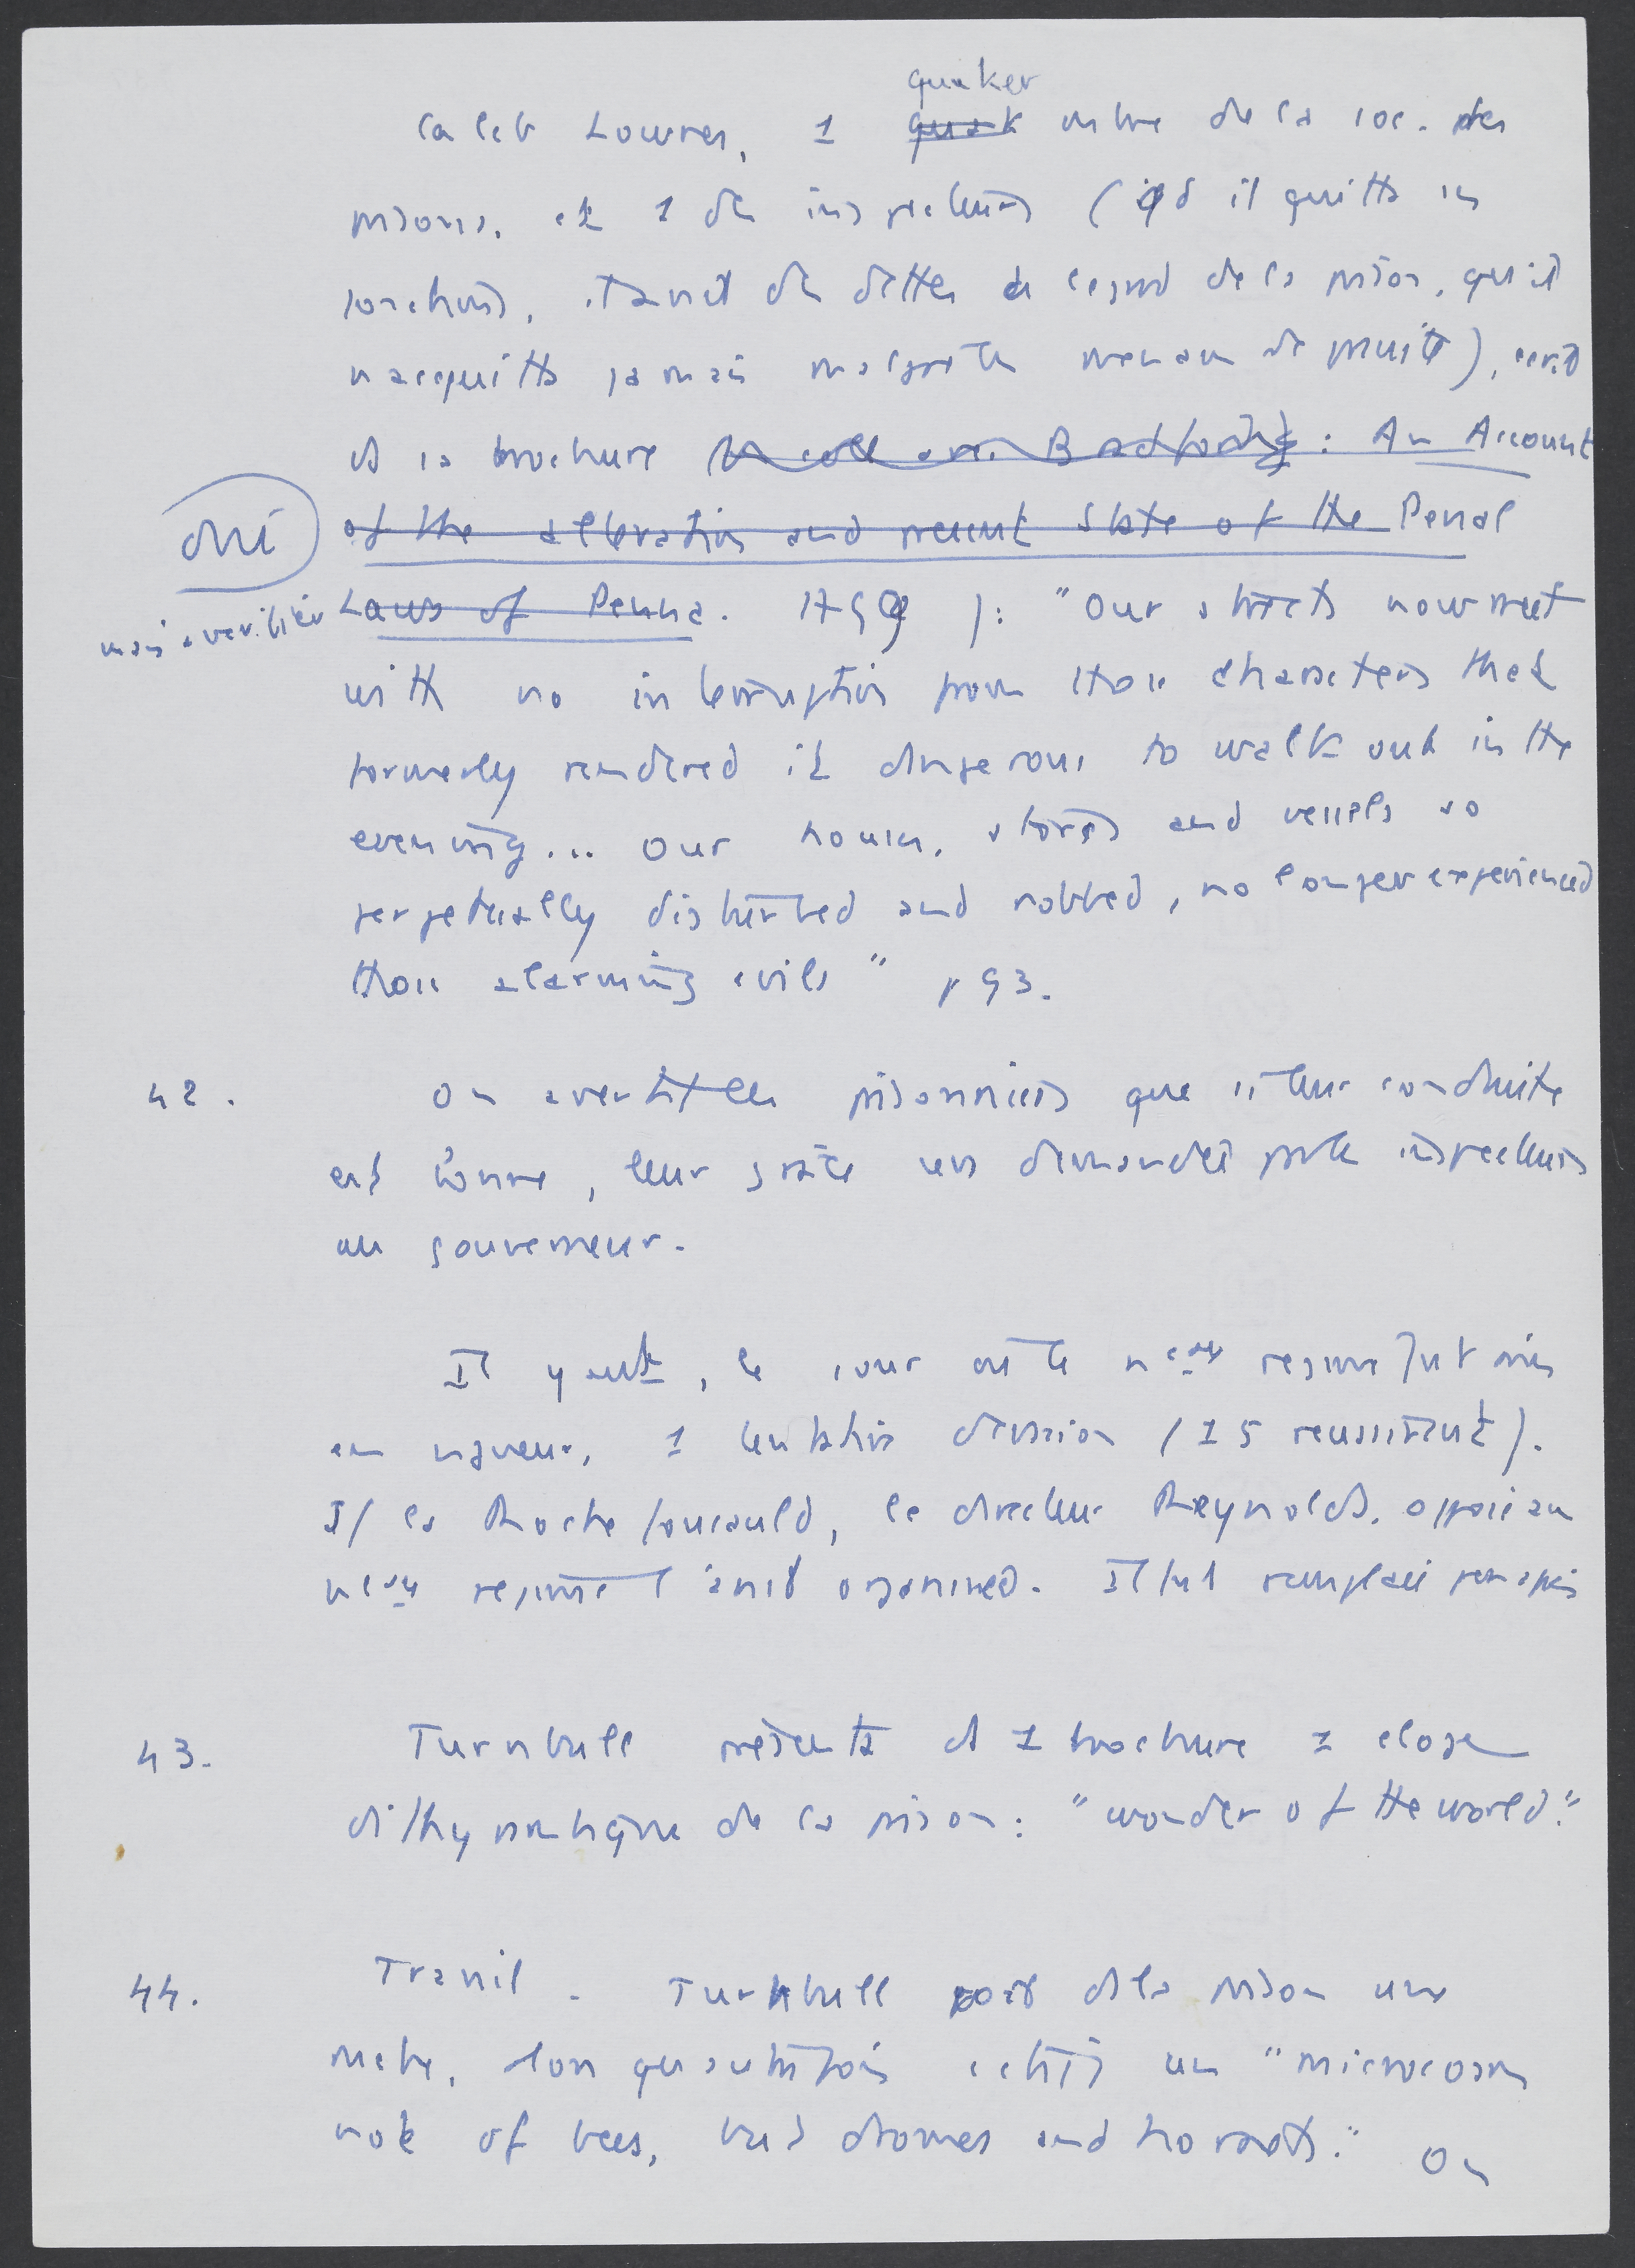 quaker
Caleb Lownes, 1 quak mbre de la soc. des
prisons, et 1 des inspecteurs (qd il quitta ses
fonctions, il avait des dettes à l'égard de la prison, qu'il
n'acquitta jamais malgré les menaces de poursuite), écrit
ds sa brochure Bradford : An Account
of the alteration and present state of the Penal
oui
Laws of Penna. 1799 ): "Our streets now meet
mais à vérifier
with no interruption from those characters that
formerly rendered it dangerous to walk out in the
evening... Our houses, stores and vessels so
perpetually disturbed and robbed, no longer experienced
those alarming evils" p 93.
42. On avertit les prisonniers que si leur conduite
est bonne, leur grâce sera demandée par les inspecteurs
au gouverneur.
Il y eut, le jour où le nveau régime fut mis
en vigueur, 1 tentative d'évasion (15 réussirent).
Sf La Rochefoucauld, le directeur Reynolds, opposé au
nveau régime l'avait organisée. Il fut remplacé peu après
43. Turnbull présenta ds 1 brochure 1 éloge
dithyrambique de la prison: "wonder of the world".
44. Travail. Turnbull voit ds la prison une
ruche, alors qu'autrefois c'était un "microcosm
not of bees, but drones and hornets". On